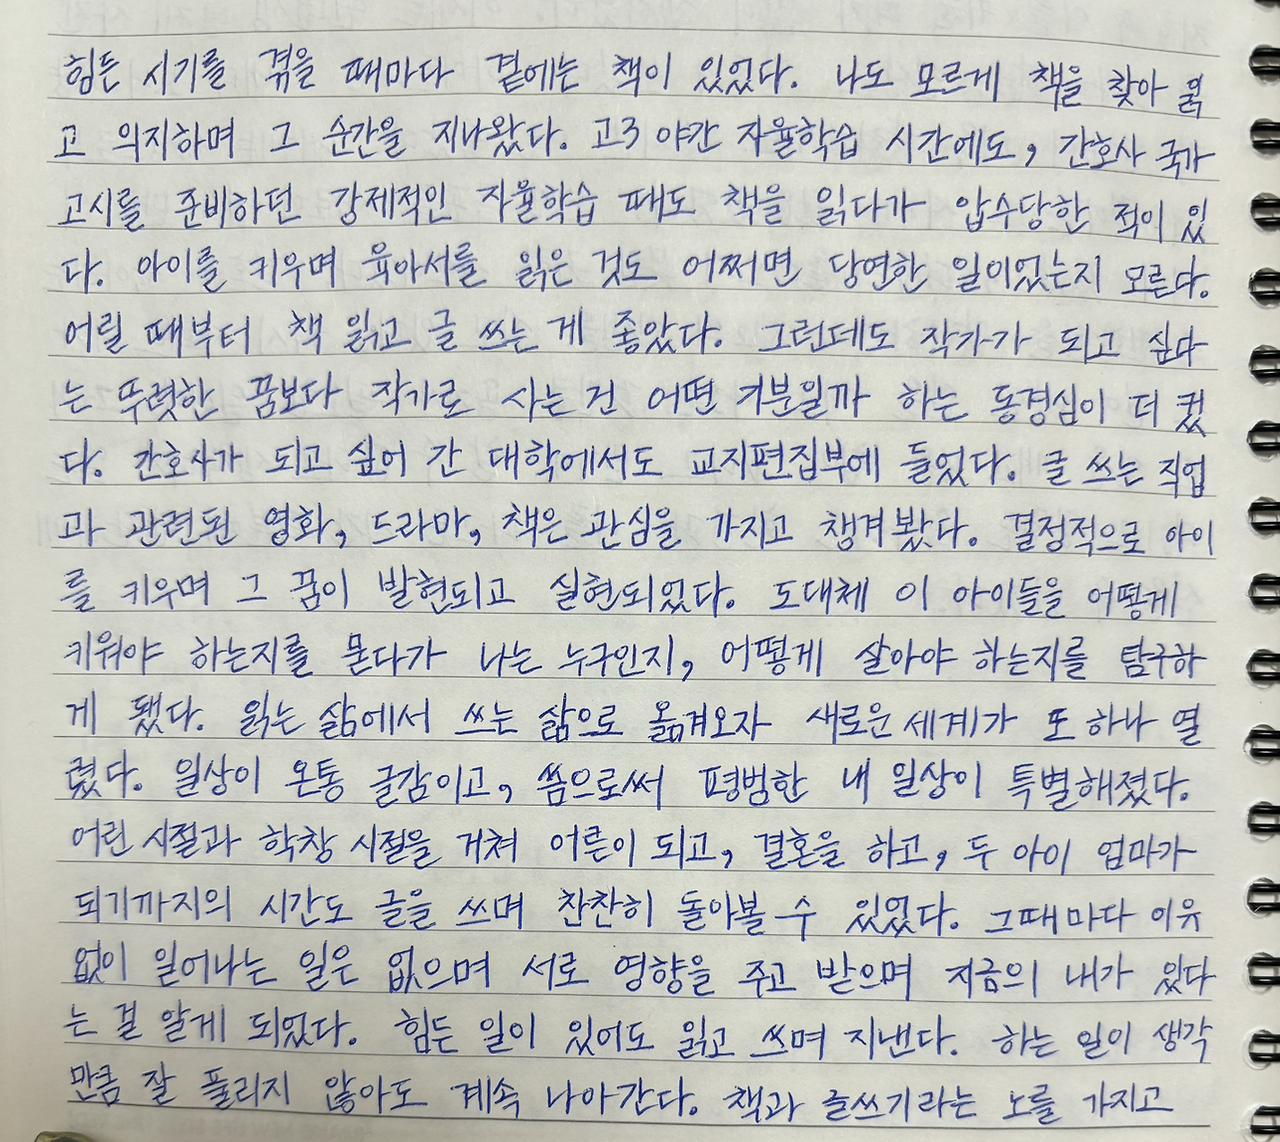 힘든 시기를 겪을 때마다 곁에는 책이 있었다. 나도 모르게 책을 찾아 읽
고 의지하며 그 순간을 지나왔다. 고3 야간 자율학습 시간에도, 간호사 국가
고시를 준비하던 강제적인 자율학습 때도 책을 읽다가 압수당한 적이 있
다. 아이를 키우며 육아서를 읽은 것도 어쩌면 당연한 일이었는지 모른다.
어릴 때부터 책 읽고 글 쓰는 게 좋았다. 그런데도 작가가 되고 싶다
는 뚜렷한 꿈보다 작가로 사는 건 어떤 기분일까 하는 동경심이 더 컸
다. 간호사가 되고 싶어 간 대학에서도 교지편집부에 들었다. 글 쓰는 직업
과 관련된 영화, 드라마, 책은 관심을 가지고 챙겨봤다. 결정적으로 아이
를 키우며 그 꿈이 발현되고 실현되었다. 도대체 이 아이들을 어떻게
키워야 하는지를 묻다가 나는 누구인지, 어떻게 살아야 하는지를 탐구하
게 됐다. 읽는 삶에서 쓰는 삶으로 옮겨오자 새로운 세계가 또 하나 열
렸다. 일상이 온통 글감이고, 씀으로써 평범한 내 일상이 특별해졌다.
어린 시절과 학창 시절을 거쳐 어른이 되고, 결혼을 하고, 두 아이 엄마가
되기까지의 시간도 글을 쓰며 찬찬히 돌아볼 수 있었다. 그때마다 이유
없이 일어나는 일은 없으며 서로 영향을 주고 받으며 지금의 내가 있다
는 걸 알게 되었다. 힘든 일이 있어도 읽고 쓰며 지낸다. 하는 일이 생각
만큼 잘 풀리지 않아도 계속 나아간다. 책과 글쓰기라는 노를 가지고